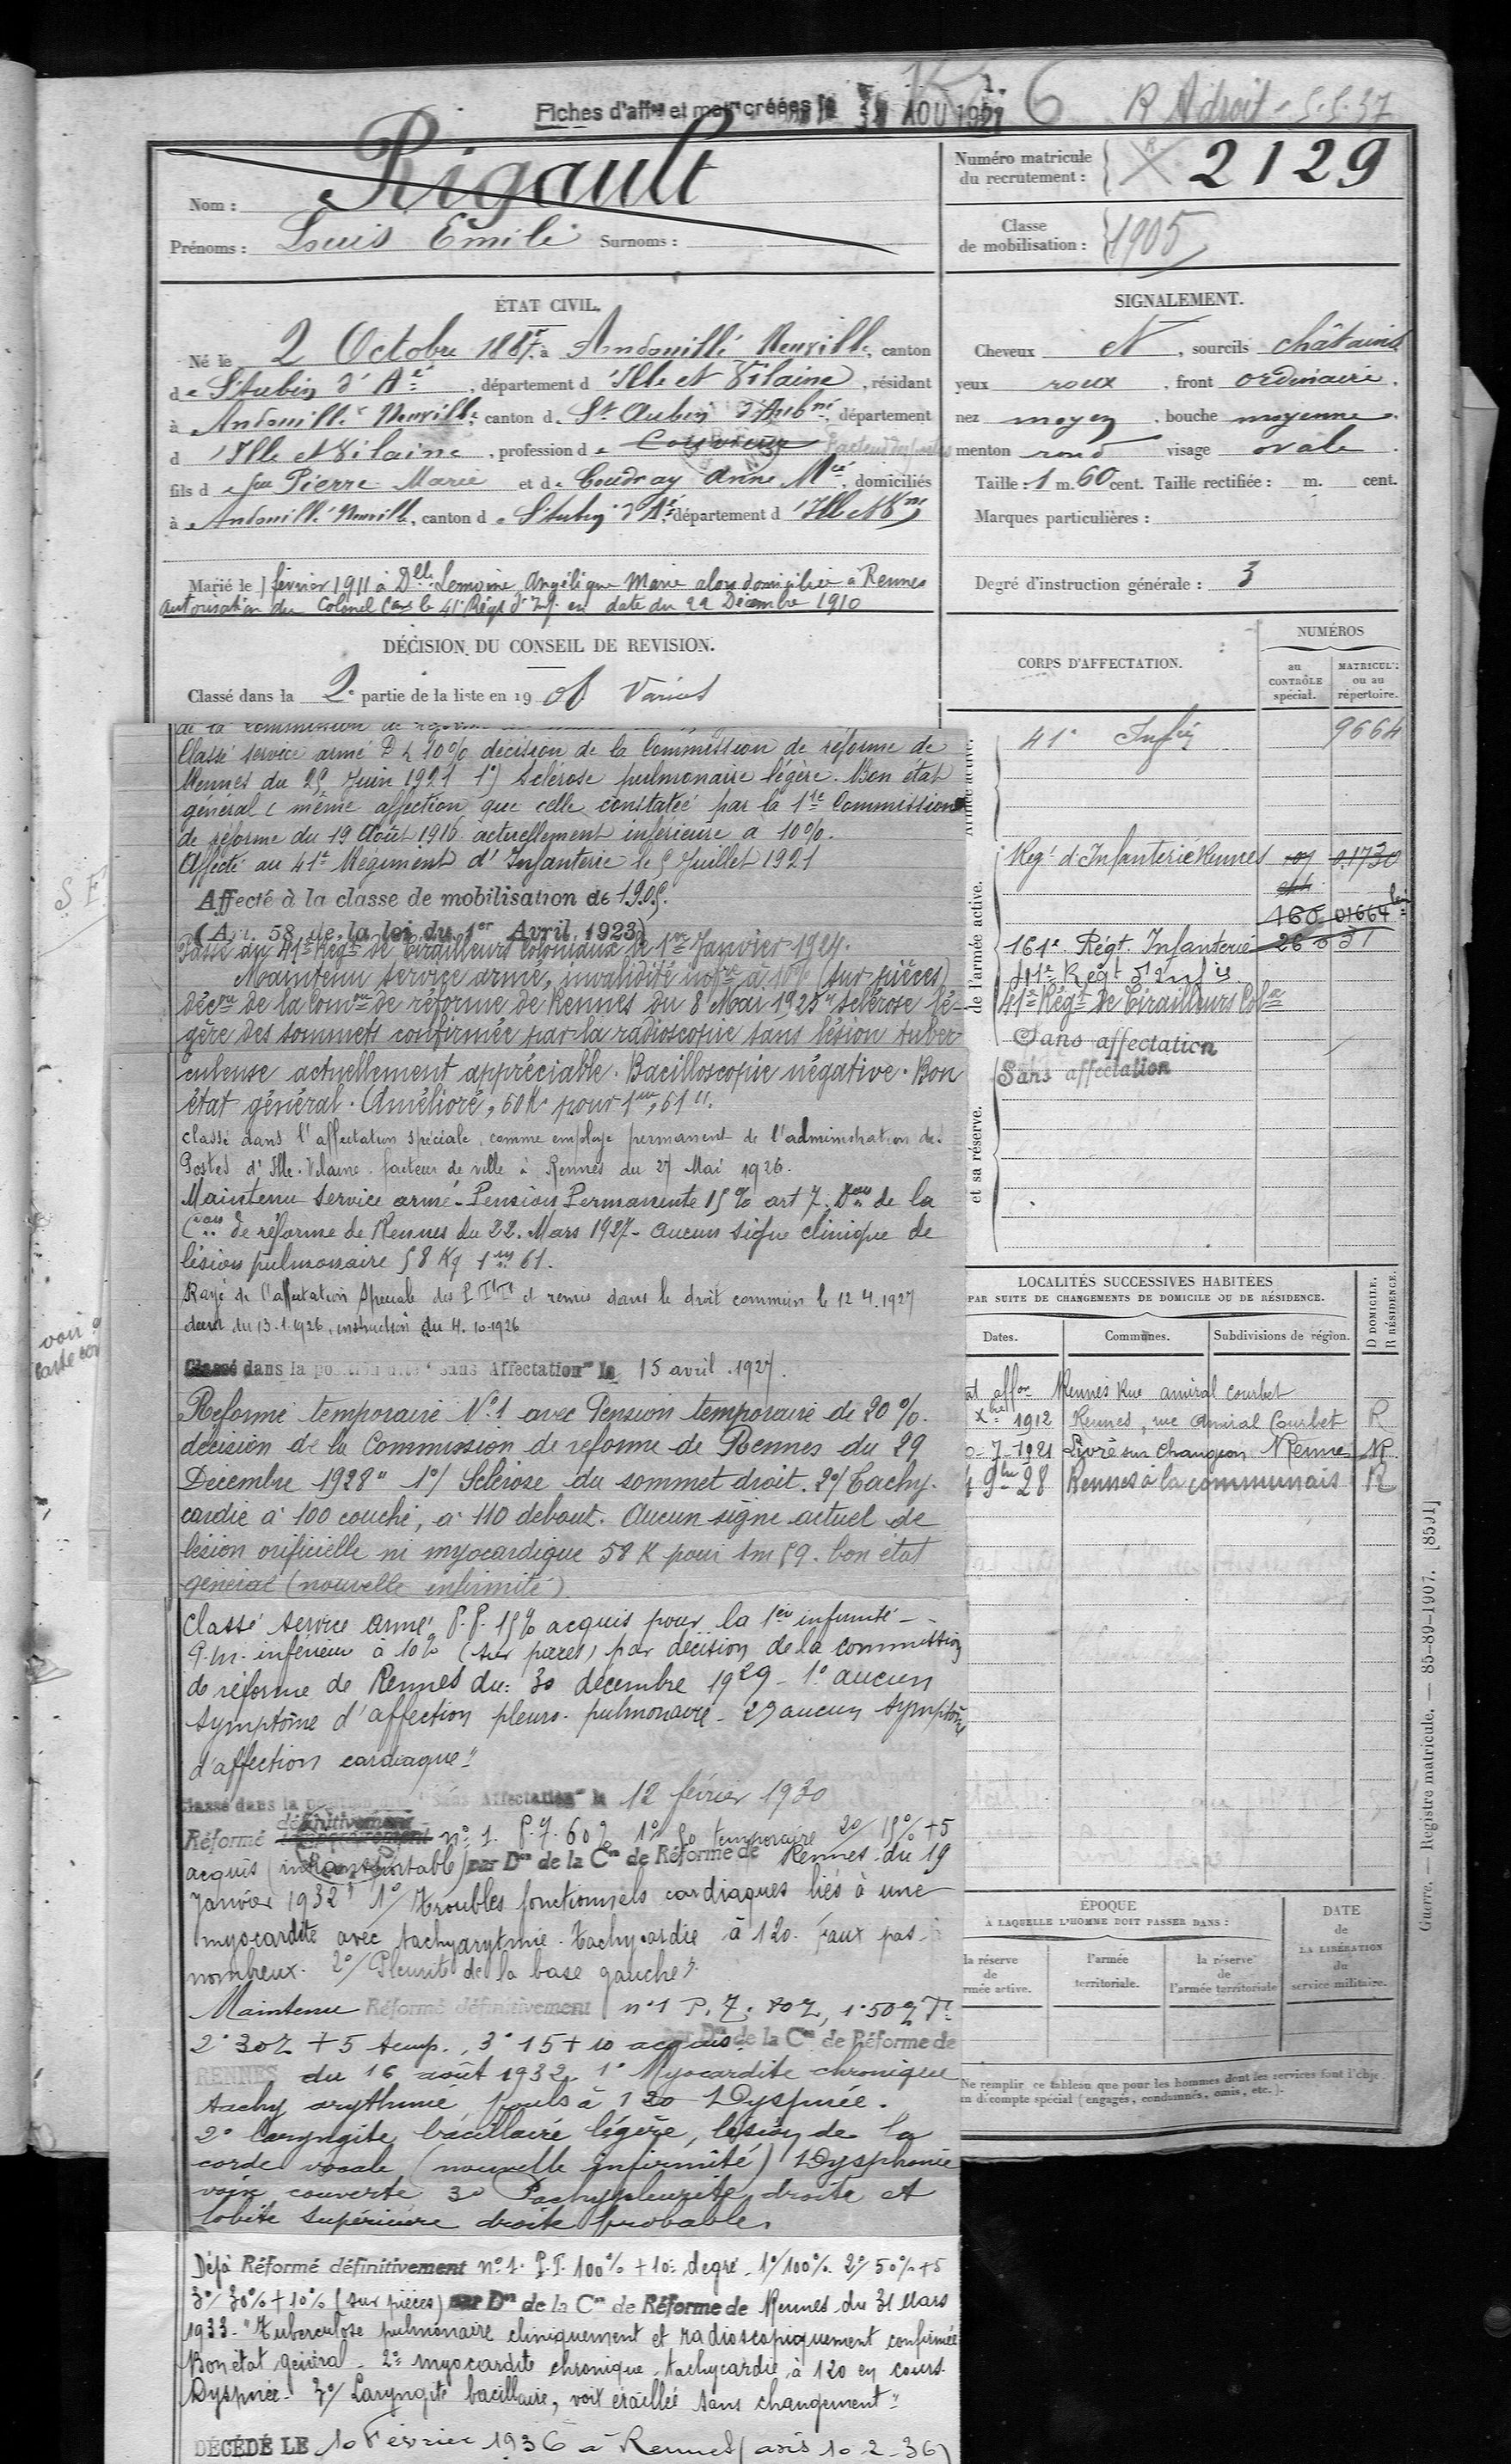 Fiches d'aff^on et mor créées le AOU 1921
6 R A droit - 5.5.37
Nom : Rigault
Prénoms : Louis Emile Surnoms :
Numéro matricule du recrutement : 2129
Classe de mobilisation : 1905
ÉTAT CIVIL.
Né le 2 Octobre 1887, à Andouillé Neuville, canton
de St Aubin d'A^é, département d'Ille et Vilaine, résidant
à Andouillé Neuville, canton de St Aubin d'Aub^né, département
d'Ille et Vilaine, profession de Facteur des postes
fils de feu Pierre Marie et de Coudray Anne M^ie, domiciliés
à Andouillé Neuville, canton de St Aubin d'A^é, département d'Ille et V^ne
Marié le 1 février 1911 à D^lle Lemoine Angélique Marie alors domiciliée à Rennes
autorisation du Colonel C^ant le 41^e Rég^t d'Inf. en date du 22 Décembre 1910
DÉCISION DU CONSEIL DE REVISION.
Classé dans la 2^e partie de la liste en 1908
SIGNALEMENT.
Cheveux et, sourcils châtains
yeux roux, front ordinaire.
nez moyen, bouche moyenne.
menton rond visage ovale.
Taille : 1 m. 60 cent. Taille rectifiée : m. cent.
Marques particulières :
Degré d'instruction générale : 3
CORPS D'AFFECTATION.
NUMÉROS
au CONTRÔLE spécial.
MATRICULE ou au répertoire.
41^e Inf^ie 9664
Rég^t d'Infanterie Rennes 01730
160 01664
161^e Régt. Infanterie
41^e Régt d'Inf^ie
41^e Rég^t de Tirailleurs Col^x
Sans affectation
Sans affectation
de l'armée active.
et sa réserve.
de la Commission de réforme
Classé service armé P < 10% décision de la Commission de réforme de
Rennes du 25 Juin 1921 1°) Sclérose pulmonaire légère. Bon état
général (même affection que celle constatée par la 1^re Commission
de réforme du 19 Août 1916 actuellement inférieure à 10%.
Affecté au 41^e Régiment d'Infanterie le 5 Juillet 1921
Affecté à la classe de mobilisation de 1905.
(Art. 58 de la loi du 1er Avril 1923)
Passé au 41^e Rég^t de Tirailleurs Coloniaux le 1^er Janvier 1924.
Maintenu service armé, invalidité inf^re à 10% (sur pièces)
déc^on de la Com^on de réforme de Rennes du 8 Mai 1925 "sclérose lé-
gère des sommets confirmée par la radioscopie sans lésion tuber-
culeuse actuellement appréciable. Bacilloscopie négative. Bon
état général. Amélioré, 60K^s pour 1^m,61".
classé dans l'affectation spéciale, comme employé permanent de l'administration des
Postes d'Ille. Vilaine. facteur de ville à Rennes du 27 Mai 1926.
Maintenu service armé - Pension Permanente 15% art 7. D^on de la
C^on de réforme de Rennes du 22. Mars 1927 - aucun signe clinique de
lésion pulmonaire 58 Kg 1^m 61.
Rayé de l'affectation Spéciale des P.T.T. et remis dans le droit commun le 12 4.1927
du 13.1.1926, instruction du 4.10.1926
Classé dans la position dite "Sans Affectation" le 15 avril 1927.
Réformé temporaire N°1 avec Pension temporaire de 20%.
décision de la Commission de réforme de Rennes du 29
Décembre 1928 "1°/ Sclérose du sommet droit. 2°/ Tachy-
cardie à 100 couché, à 110 debout. Aucun signe actuel de
lésion orificielle ni myocardique 58 K pour 1m59. bon état
général (nouvelle infirmité)
Classé service armé P.P. 15% acquis pour la 1^ère infirmité -
P.m. inférieur à 10% (sur pièces) par décision de la commission
de réforme de Rennes du: 30 décembre 1929 - 1° aucun
symptôme d'affection pleuro-pulmonaire - 2° aucun symptôme
d'affection cardiaque"
Classé dans la position dite "Sans Affectation" le 12 février 1930
Réformé définitivement n°1. P.T. 60% 1°/ 50 temporaire 2°/ 15% + 5
acquis (intransportable) par D^on de la C^on de Réforme de Rennes du 19
Janvier 1932 "1°/ troubles fonctionnels cardiaques liés à une
myocardite avec tachyarytmie. tachycardie à 120. Faux pas
nombreux. 2°/ Pleurite de la base gauche".
Maintenu Réformé définitivement n°1 P.T. 80%, 1° 50% T^e
2° 30% + 5 temp., 3° 15 + 10 acquis par D^on de la C^on de Réforme de
RENNES du 16 août 1932. 1° Myocardite chronique
tachy arythmie, pouls à 120 Dyspnée.
2° laryngite bacillaire légère, lésion de la
corde vocale (nouvelle infirmité) Dysphonie
voix couverte 3° Pachypleurite droite et
lobite supérieure droite probable.
Déjà Réformé définitivement n°1. P.T. 100% + 10e degré. 1°/ 100%. 2°/ 50% + 5
3°/ 30% + 10% (sur pièces) par D^on de la C^on de Réforme de Rennes du 31 Mars
1933 - "Tuberculose pulmonaire cliniquement et radioscopiquement confirmée
Bon état général - 2° myocardite chronique, tachycardie, à 120 en cours.
Dyspnée. 3°/ Laryngite bacillaire, voix éraillée sans changement"
DÉCÉDÉ LE 10 Février 1936 à Rennes (avis 10-2-36)
LOCALITÉS SUCCESSIVES HABITÉES
PAR SUITE DE CHANGEMENTS DE DOMICILE OU DE RÉSIDENCE.
D DOMICILE. R RÉSIDENCE.
Dates. Communes. Subdivisions de région.
Rennes Rue amiral courbet
X^bre 1912 Rennes, rue Amiral Courbet R
7-1921 Livré sur Changeon Rennes
9^bre 28 Rennes à la communais R
ÉPOQUE
À LAQUELLE L'HOMME DOIT PASSER DANS :
la réserve de l'armée active.
l'armée territoriale.
la réserve de l'armée territoriale
DATE de LA LIBÉRATION du service militaire.
Ne remplir ce tableau que pour les hommes dont les services font l'obje
un décompte spécial (engagés, condamnés, omis, etc.).
Guerre. — Registre matricule. — 85-89-1907. [8591]
S.E.
voir